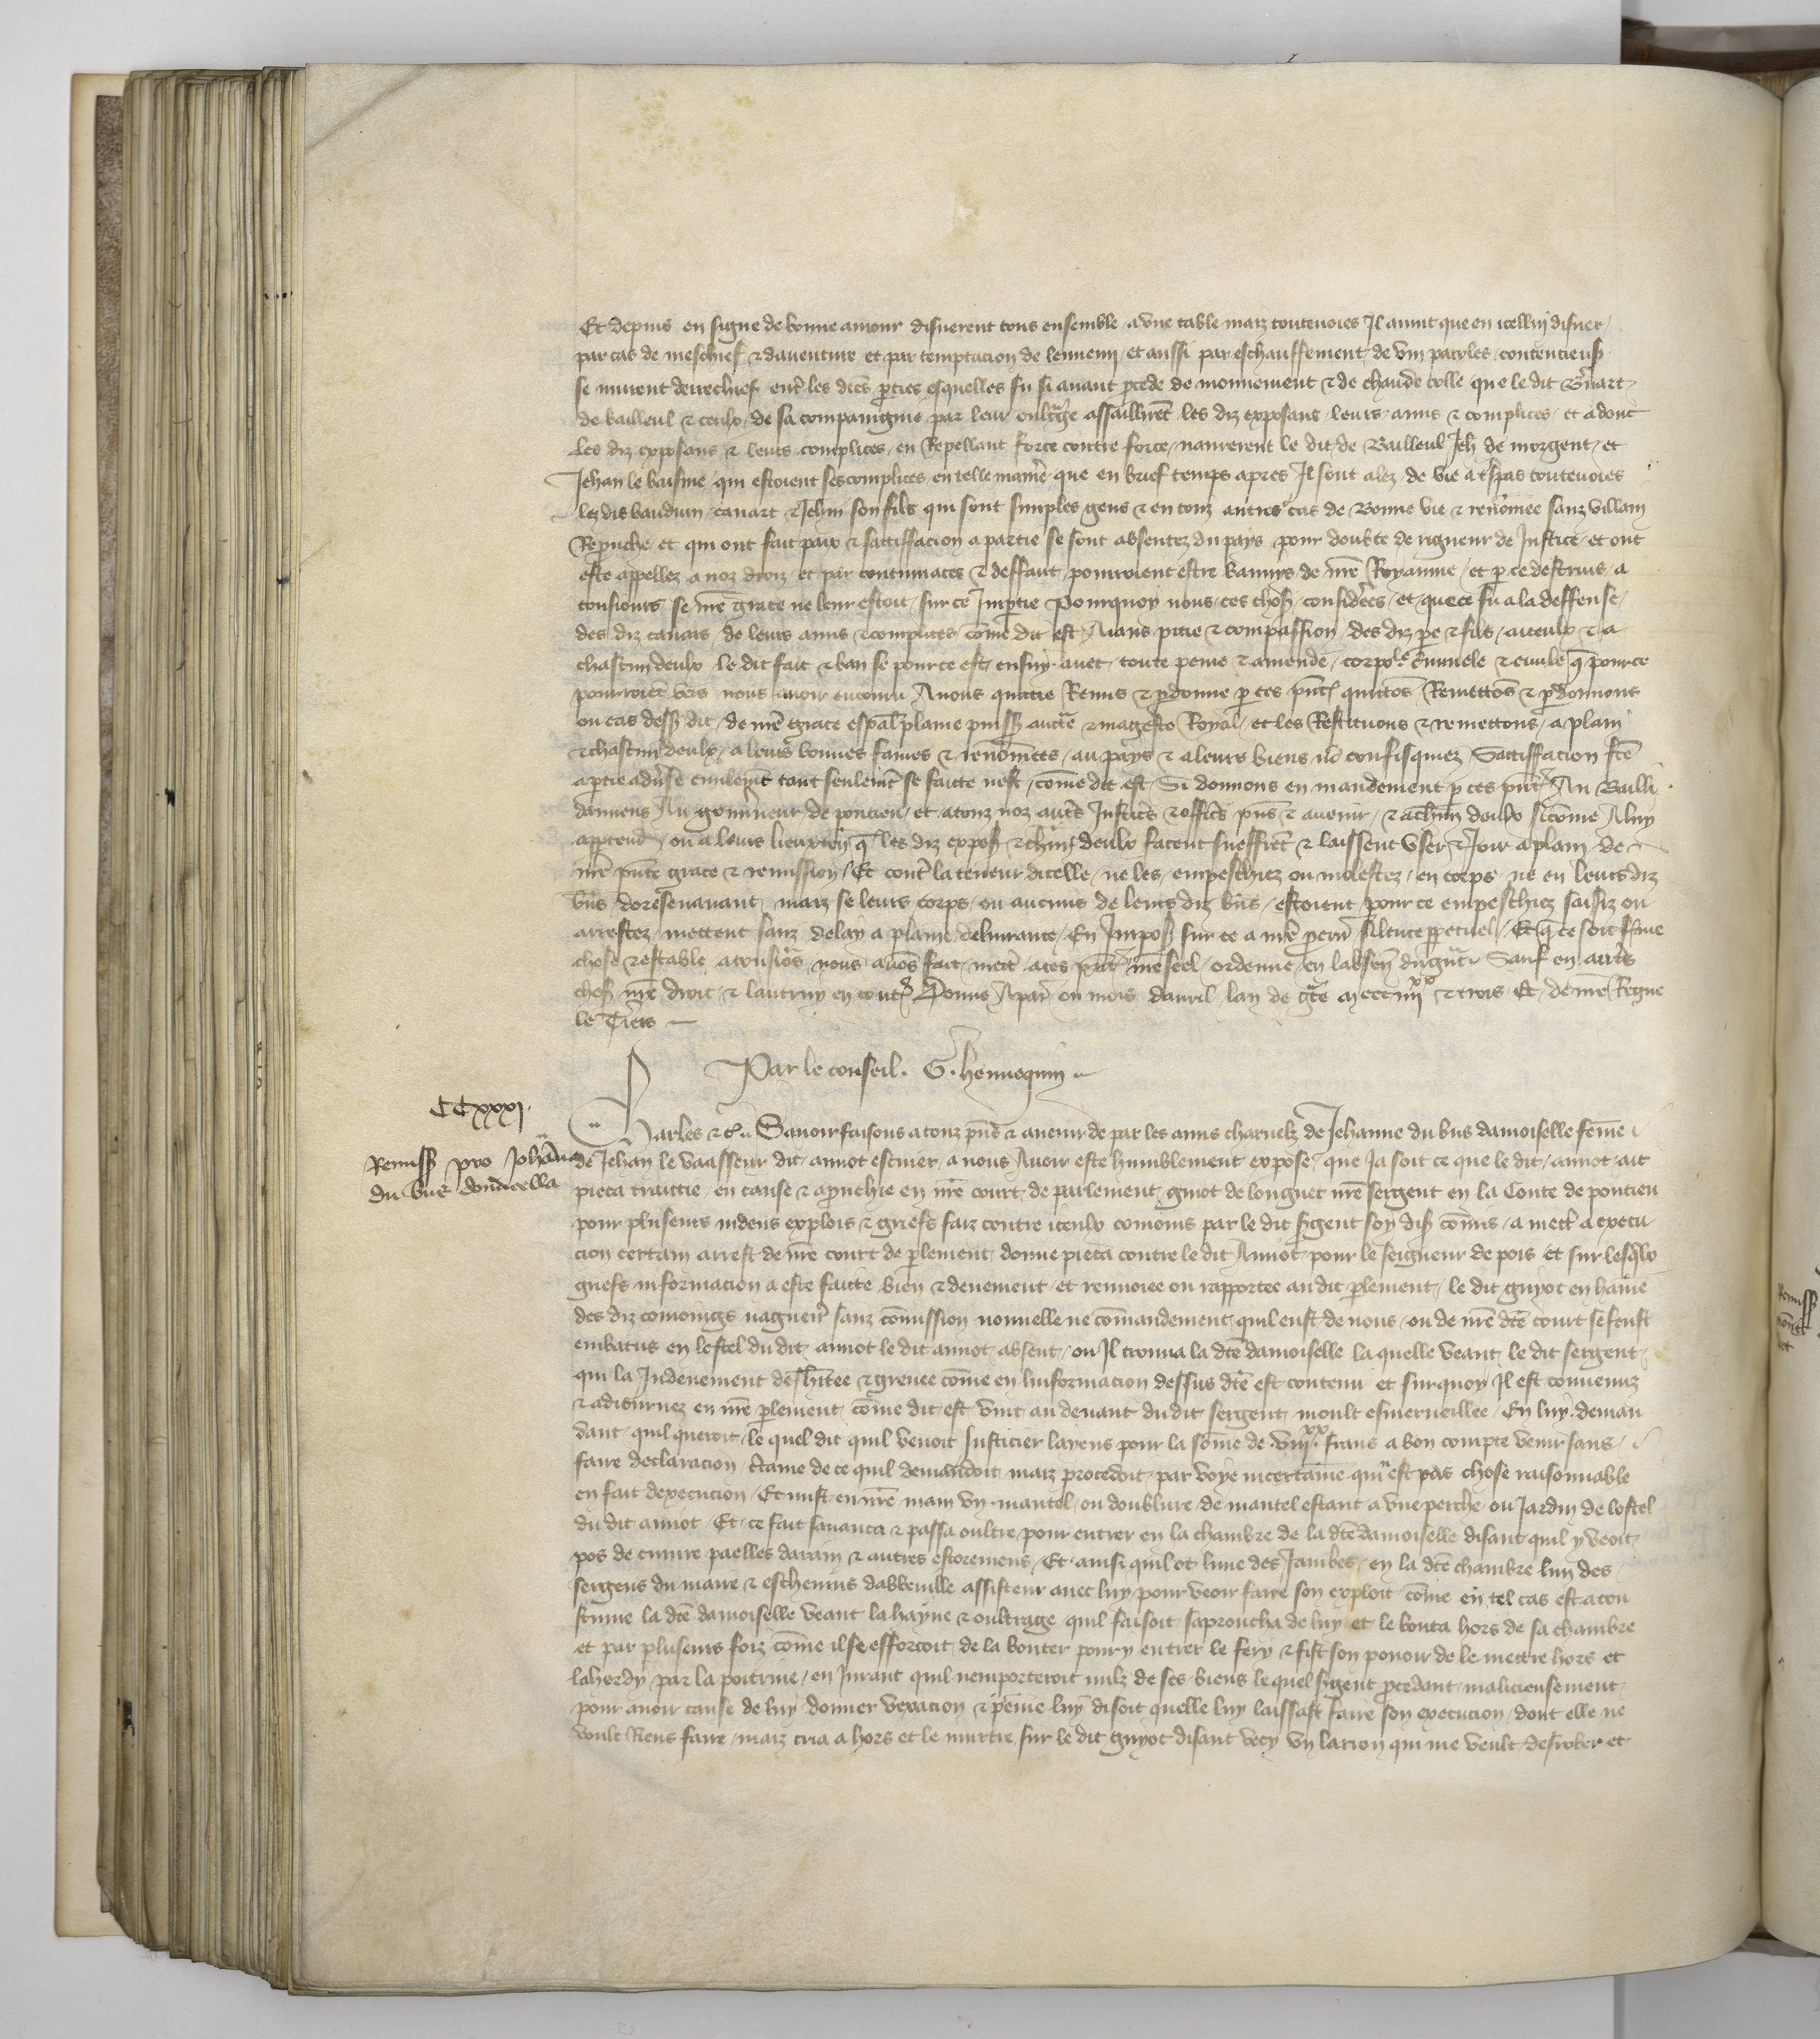 Et depuis en signe de bonne amour disnerent tous ensemble a une table maiz toutevoies Il avint que en icellui disner
par cas de meschief & daventure et par temptacion de lennemi et aussi par eschauffement de vin paroles contencieuses
se murent derrechief entre les dictes parties esquelles fu si avant procede de mouvement & de chaude colle que le dit Bernart
de bailleul & ceulx de sa compaingnie par leur oultrage assaillirent les diz exposans leurs amis & complices et adonc
les diz exposans & leurs complices en Repellant force contre force navrerent le dit de Bailleul Jeh de morgent et
Jehan le baisme qui estoient ses complices en telle maniere que en brief temps apres Il sont alez de vie a trespas toutevoies
lez dis bauduin canart & Jehan son filz qui sont simples gens & en touz autres cas de Bonne vie & renommee sanz villain
Reprouche et qui ont fait paix & sattiffacion a partie se sont absentez du pays pour doubte de rigueur de Justice et ont
este appellez a noz droiz et par contumaces & deffaut pourroient estre bannis de nostre Royaume et par ce destruis a
tousiours se nostre grace ne leur estoit sur ce Impartie Pourquoy nous ces choses considerees et que ce fu a la deffense
des diz canars de leurs amis & complices comme dit est Aians pitie & compassion des diz pere & filz a iceulx & a
chascun deulx le dit fait & ban se pour ce est ensuy avec toute peine & amende corporele criminele & civile que pour ce
pourroient vers nous avoir encouru Avons quittie Remis & pardonne par ces presentes quittons Remettons & pardonnons
ou cas dessus dit de nostre grace especial plaine puissance auctorite & mageste Royal et les Restituons & remettons a plain
& chascun deulx a leurs bonnes fames & renommees au pays & a leurs biens non confisquiez Sattiffacion faicte
a partie adverse civilement tant seulement se faitte nest comme dit est Si donnons en mandement par ces presentes Au Bailli
damiens Au gouverneur de pontieu et a touz noz autres Justiciers & officiers presens & avenir & a chascun deulx si comme A luy
appartendra ou a leurs lieuxten que les diz exposans & chascun deulx facent sueffrent & laissent User & Joir a plain de
nostre presente grace & remission Et contre la teneur dicelle ne les empeschiez ou molestez en corps ne en leurs diz
biens doresenavant maiz se leurs corps ou aucuns de leurs diz biens estoient pour ce empeschiez saisiz ou
arrestez mettent sanz delay a plaine delivrance En Imposant sur ce a nostre procureur silence perpetuel Et que ce soit ferme
chose & estable a tousiours nous avons fait mettre a ces presentes nostre seel ordenne en labsence du grant Sauf en autres
choses nostre droit & lautruy en toutes Donne A paris ou mois davril lan de grace mccc iiii xx & trois Et de nostre Regne
le Tiers
Par le conseil. G. hennequin
CCxxxj.
Remiss pro Johanna
du bus domicella
Charles &c. Savoir faisons a touz presens & avenir de par les amis charnelz de Jehanne du bus damoiselle femme
de Jehan le vaasseur dit annot escuier a nous Avoir este humblement expose que Ja soit ce que le dit annot ait
pieca traittie en cause & aprouchie en nostre court de parlement guiot de longuet nostre sergent en la Conte de pontieu
pour pluseurs indeus explois & griefs faiz contre iceulx comoins par le dit sergent soy disant commis a mectre a execu
cion certain arrest de nostre court de parlement donne pieca contre le dit Annot pour le seigneur de pois et sur lesquelx
griefs informacion a este faitte bien & deuement et renvoiee ou rapportee au dit parlement le dit guyot en haine
des diz comoings naguere sanz commission nouvelle ne commandement quil eust de nous ou de nostre dicte court se feust
embatus en lostel du dit annot le dit annot absent ou Il trouva la dicte damoiselle la quelle veant le dit sergent
qui la Indeuement desheritee & grevee comme en linformacion dessus dicte est contenu et sur quoy Il est convenuz
& adiournez en nostre parlement comme dit est vint au devant du dit sergent moult esmerveillee En luy deman
dant quil queroit le quel dit quil venoit Justicier layens pour la somme de viii xx frans a bon compte venir sans
faire declaracion certaine de ce quil demandoit maiz procedoit par voye incertaine qui nest pas chose raisonnable
en fait dexecucion Et mist en nostre main un mantel ou doublure de mantel estant a une perche ou Jardin de lostel
du dit annot Et ce fait savanca & passa oultre pour entrer en la chambre de la dicte damoiselle disant quil y veoit
pos de cuivre paelles darain & autres estoremens Et ainsi quil ot lune des Jambes en la dicte chambre lun des
sergens du maire & eschevins dabbeville assisteur avec luy pour veoir faire son exploit comme en tel cas est acou
stume la dicte damoiselle veant la hayne & oultrage quil faisoit saproucha de luy et le bouta hors de sa chambre
et par pluseurs foiz comme il se efforcoit de la bouter pour y entrer le fery & fist son povoir de le mettre hors et
lahordy par la poitrine en Jurant quil nemporteroit nulz de ses biens le quel sergent procedant malicieusement
pour avoir cause de luy donner vexacion & peine luy disoit quelle luy laissast faire son execucion dont elle ne
voult Riens faire maiz cria a hors et le murtre sur le dit guyot disant vecy un larron qui me veult desrober et